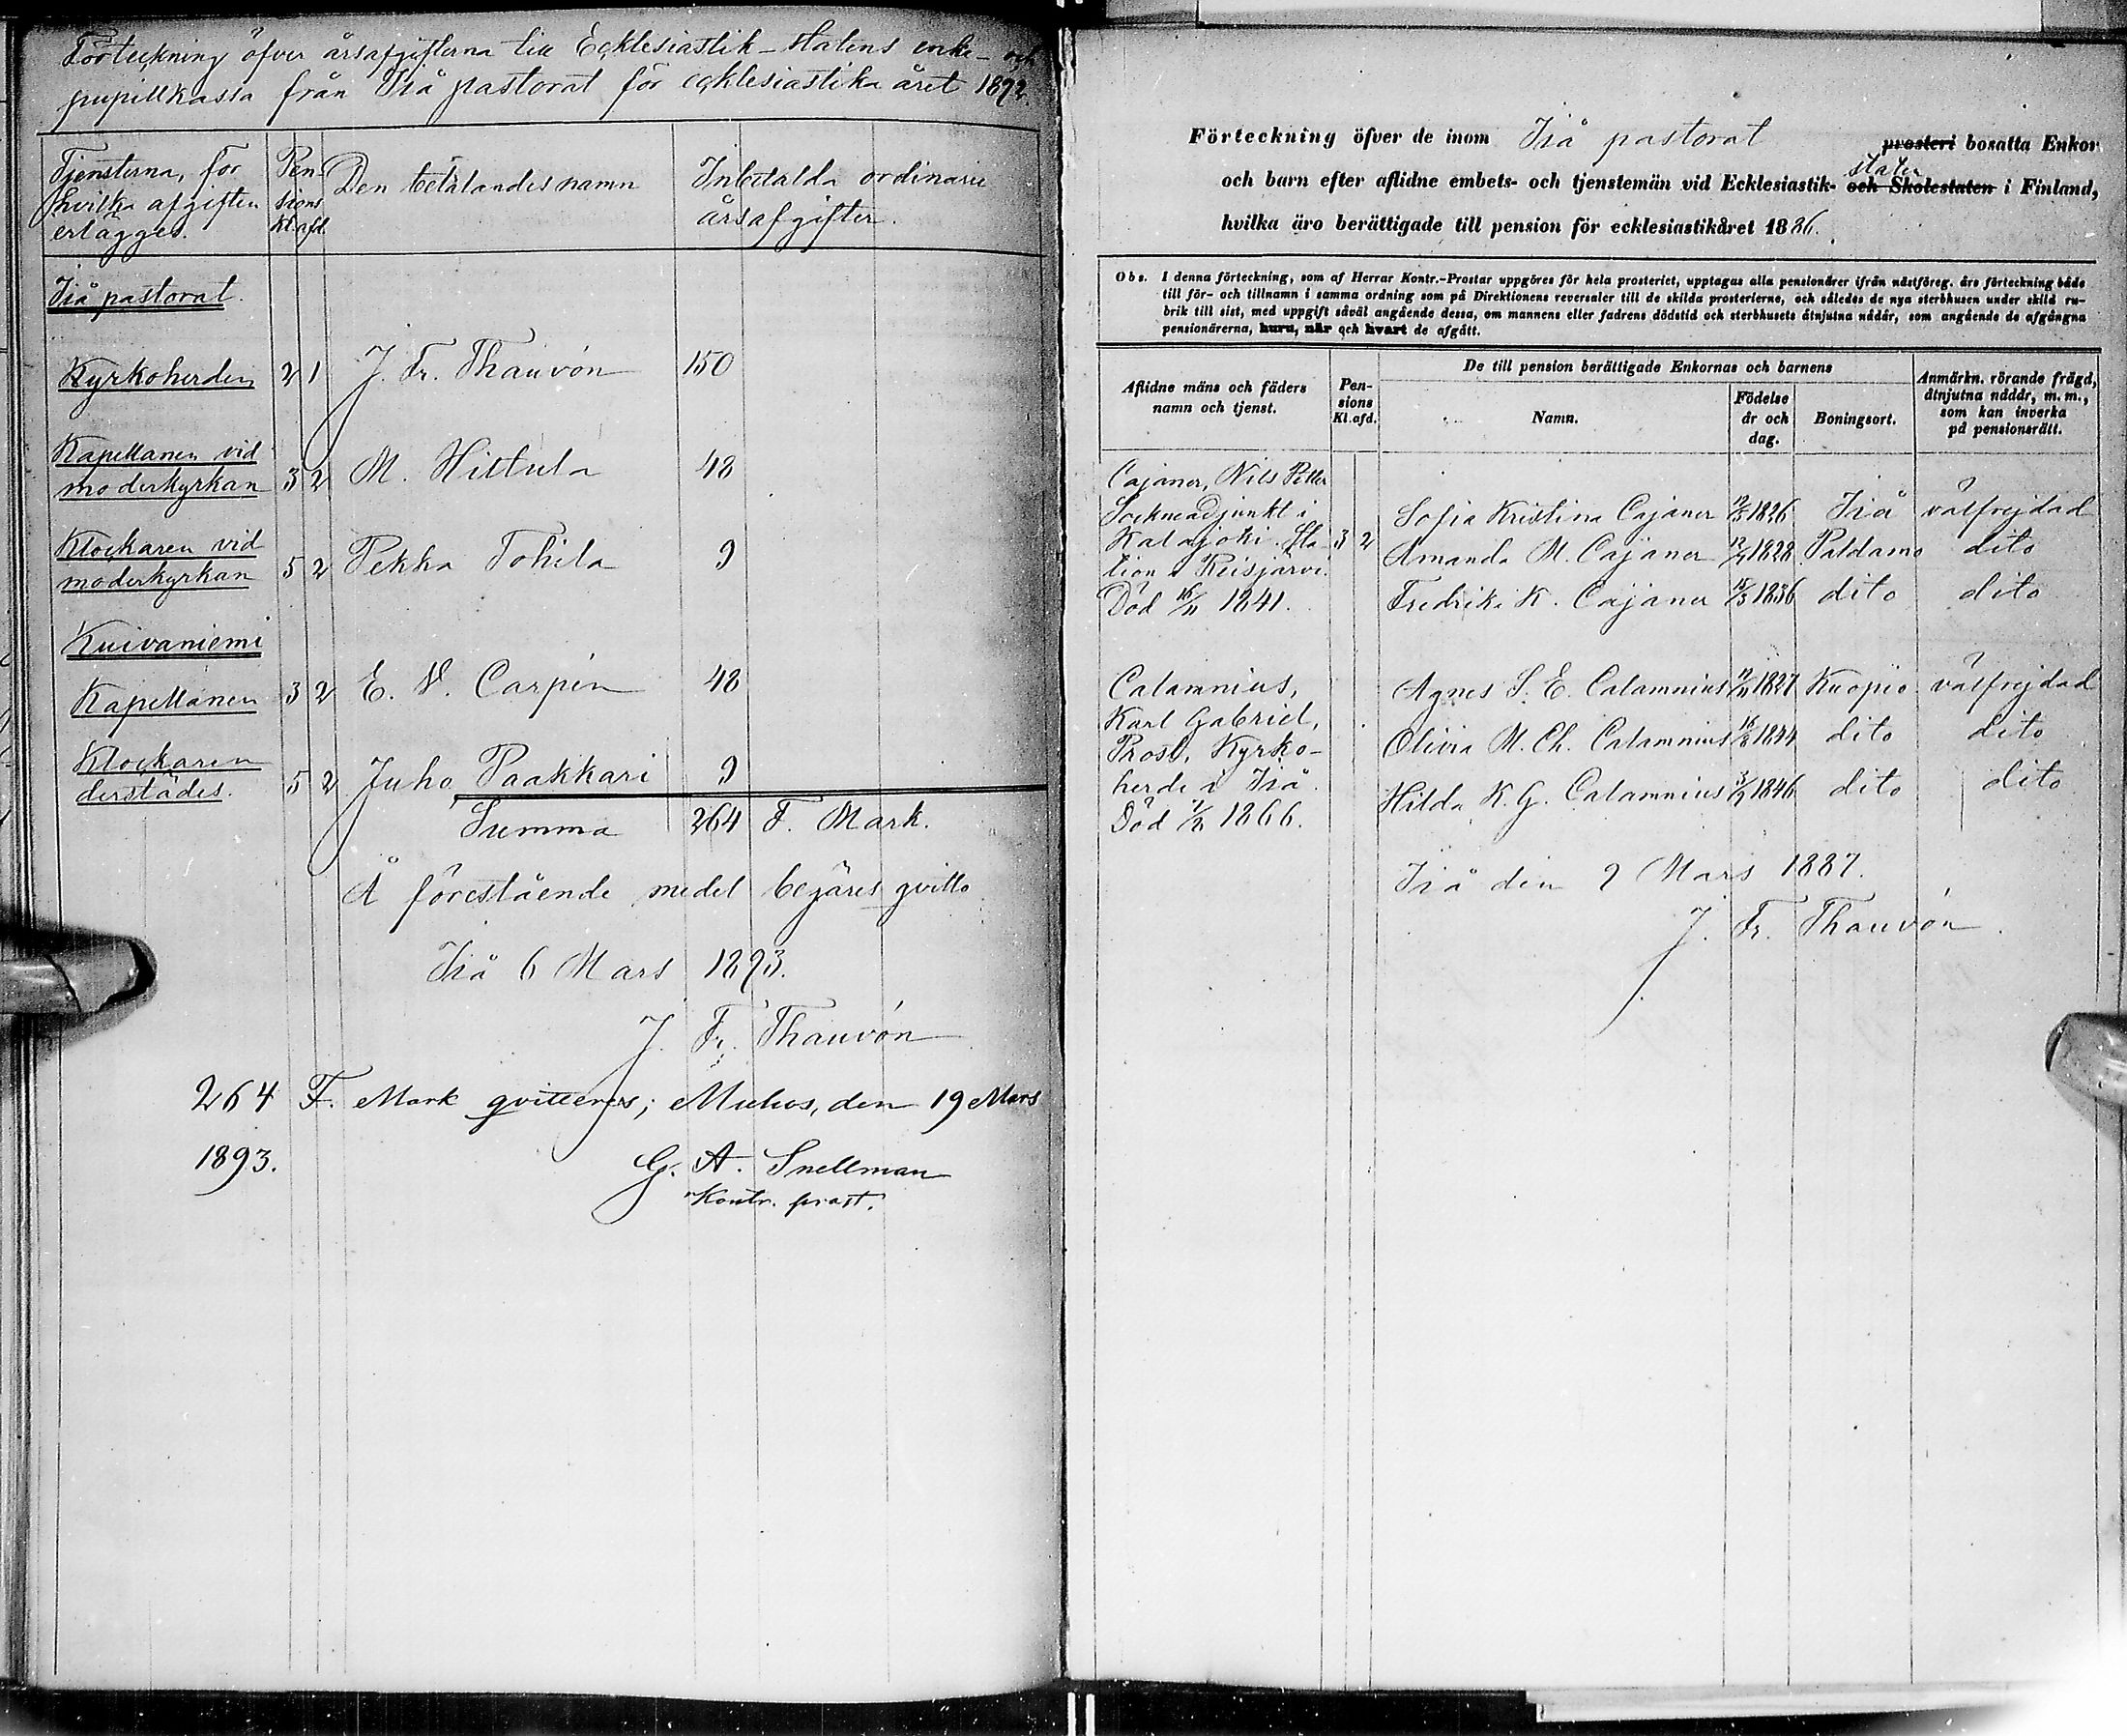 Förteckning öfver årsafgifterna till Ecklesiastik-statens enke- och
pupillkassa från Iiå pastorat för ecklesiastika året 1892.
Tjensterna, för hvilka afgiften erlägges. Pensions Kl. afd. Den betalandes namn Inbetalda ordinarie årsafgifter.
Iiå pastorat.
Kyrkoherden 2 1 J. Fr. Thauvón 150
Kapellanen vid
moderkyrkan 3 2 M. Hittula 48
Klockaren vid
moderkyrkan 5 2 Pekka Tohila 9
Kuivaniemi
Kapellanen 3 2 E. V. Carpén 48
Klockaren
derstädes. 5 2 Juho Paakkari 9
Summa 264 F. Mark.
Å förestående medel begäres qvitto
Iiå 6 Mars 1893.
J. Fr. Thauvón
264 F. Mark qvitteras; Muhos, den 19 Mars
1893. G. A. Snellman
Kontr. prost.
Förteckning öfver de inom Iiå pastorat prosteri bosatta Enkor
staten
och barn efter aflidne embets- och tjenstemän vid Ecklesiastik- och Skolestaten i Finland,
hvilka äro berättigade till pension för ecklesiastikåret 1886.
Obs. I denna förteckning, som af Herrar Kontr.-Prostar uppgöres för hela prosteriet, upptagas alla pensionärer ifrån nästföreg. års förteckning både
till för- och tillnamn i samma ordning som på Direktionens reversaler till de skilda prosterierne, och således de nya sterbhusen under skild ru-
brik till sist, med uppgift såväl angående dessa, om mannens eller fadrens dödstid och sterbhusets åtnjutna nådår, som angående de afgångna
pensionärerna, huru, når och hvart de afgått.
Aflidne mäns och fäders namn och tjenst. Pensions Kl. afd. De till pension berättigade Enkornas och barnens
Namn. Födelse år och dag. Boningsort. Anmärkn. rörande frägd, åtnjutna nådår, m. m., som kan inverka på pensionsrätt.
Cajaner, Nils Petter
Sockneadjunkt i Sofia Kristina Cajaner 1826 Iiå välfrejdad
Kalajoki. Sta- 3 2 Amanda M. Cajaner 1828 Paldamo dito
tion i Reisjärvi.
Död 16/11 1841. Fredrika K. Cajaner 1836 dito dito
Calamnius, Agnes S. E. Calamnius 1827 Kuopio välfrejdad
Karl Gabriel,
Prost, Kyrko- Olivia M. Ch. Calamnius 1844 dito dito
herde i Iiå. Hilda K. G. Calamnius 1846 dito dito
Död 1866.
Iiå den 9 Mars 1887.
J. Fr. Thauvón.